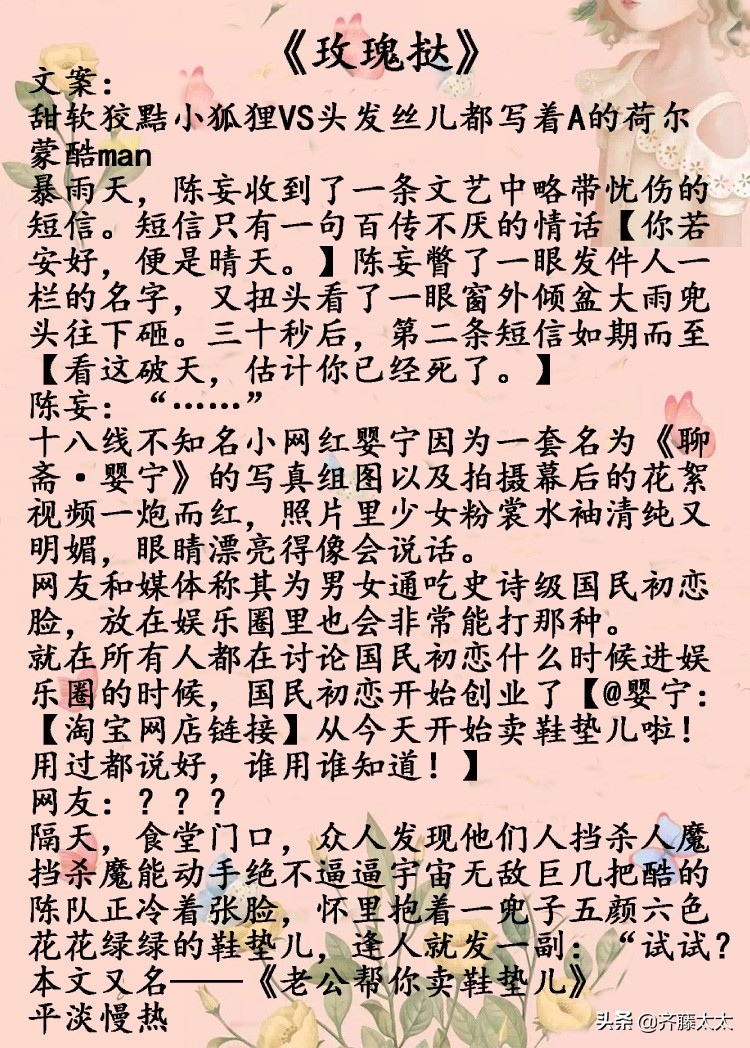 《玫瑰挞》
文案：
甜软狡黠小狐狸VS头发丝儿都写着A的荷尔
蒙酷man
暴雨天，陈妄收到了一条文艺中略带忧伤的
短信。短信只有一句百传不厌的情话【你若
安好，便是晴天。】陈妄瞥了一眼发件人一
栏的名字，又扭头看了一眼窗外倾盆大雨兜
头往下砸。三十秒后，第二条短信如期而至
【看这破天，估计你已经死了。】
陈妄：“……”
十八线不知名小网红婴宁因为一套名为《聊
斋·婴宁》的写真组图以及拍摄幕后的花絮
视频一炮而红，照片里少女粉裳水袖清纯又
明媚，眼睛漂亮得像会说话。
网友和媒体称其为男女通吃史诗级国民初恋
脸，放在娱乐圈里也会非常能打那种。
就在所有人都在讨论国民初恋什么时候进娱
乐圈的时候，国民初恋开始创业了【@婴宁：
【淘宝网店链接】从今天开始卖鞋垫儿啦！
用过都说好，谁用谁知道！】
网友：？？？
隔天，食堂门口，众人发现他们人挡杀人魔
挡杀魔能动手绝不逼逼宇宙无敌巨几把酷的
陈队正冷着张脸，怀里抱着一兜子五颜六色
花花绿绿的鞋垫儿，逢人就发一副：“试试？
本文又名——《老公帮你卖鞋垫儿》
平淡慢热
头条 @齐藤太太